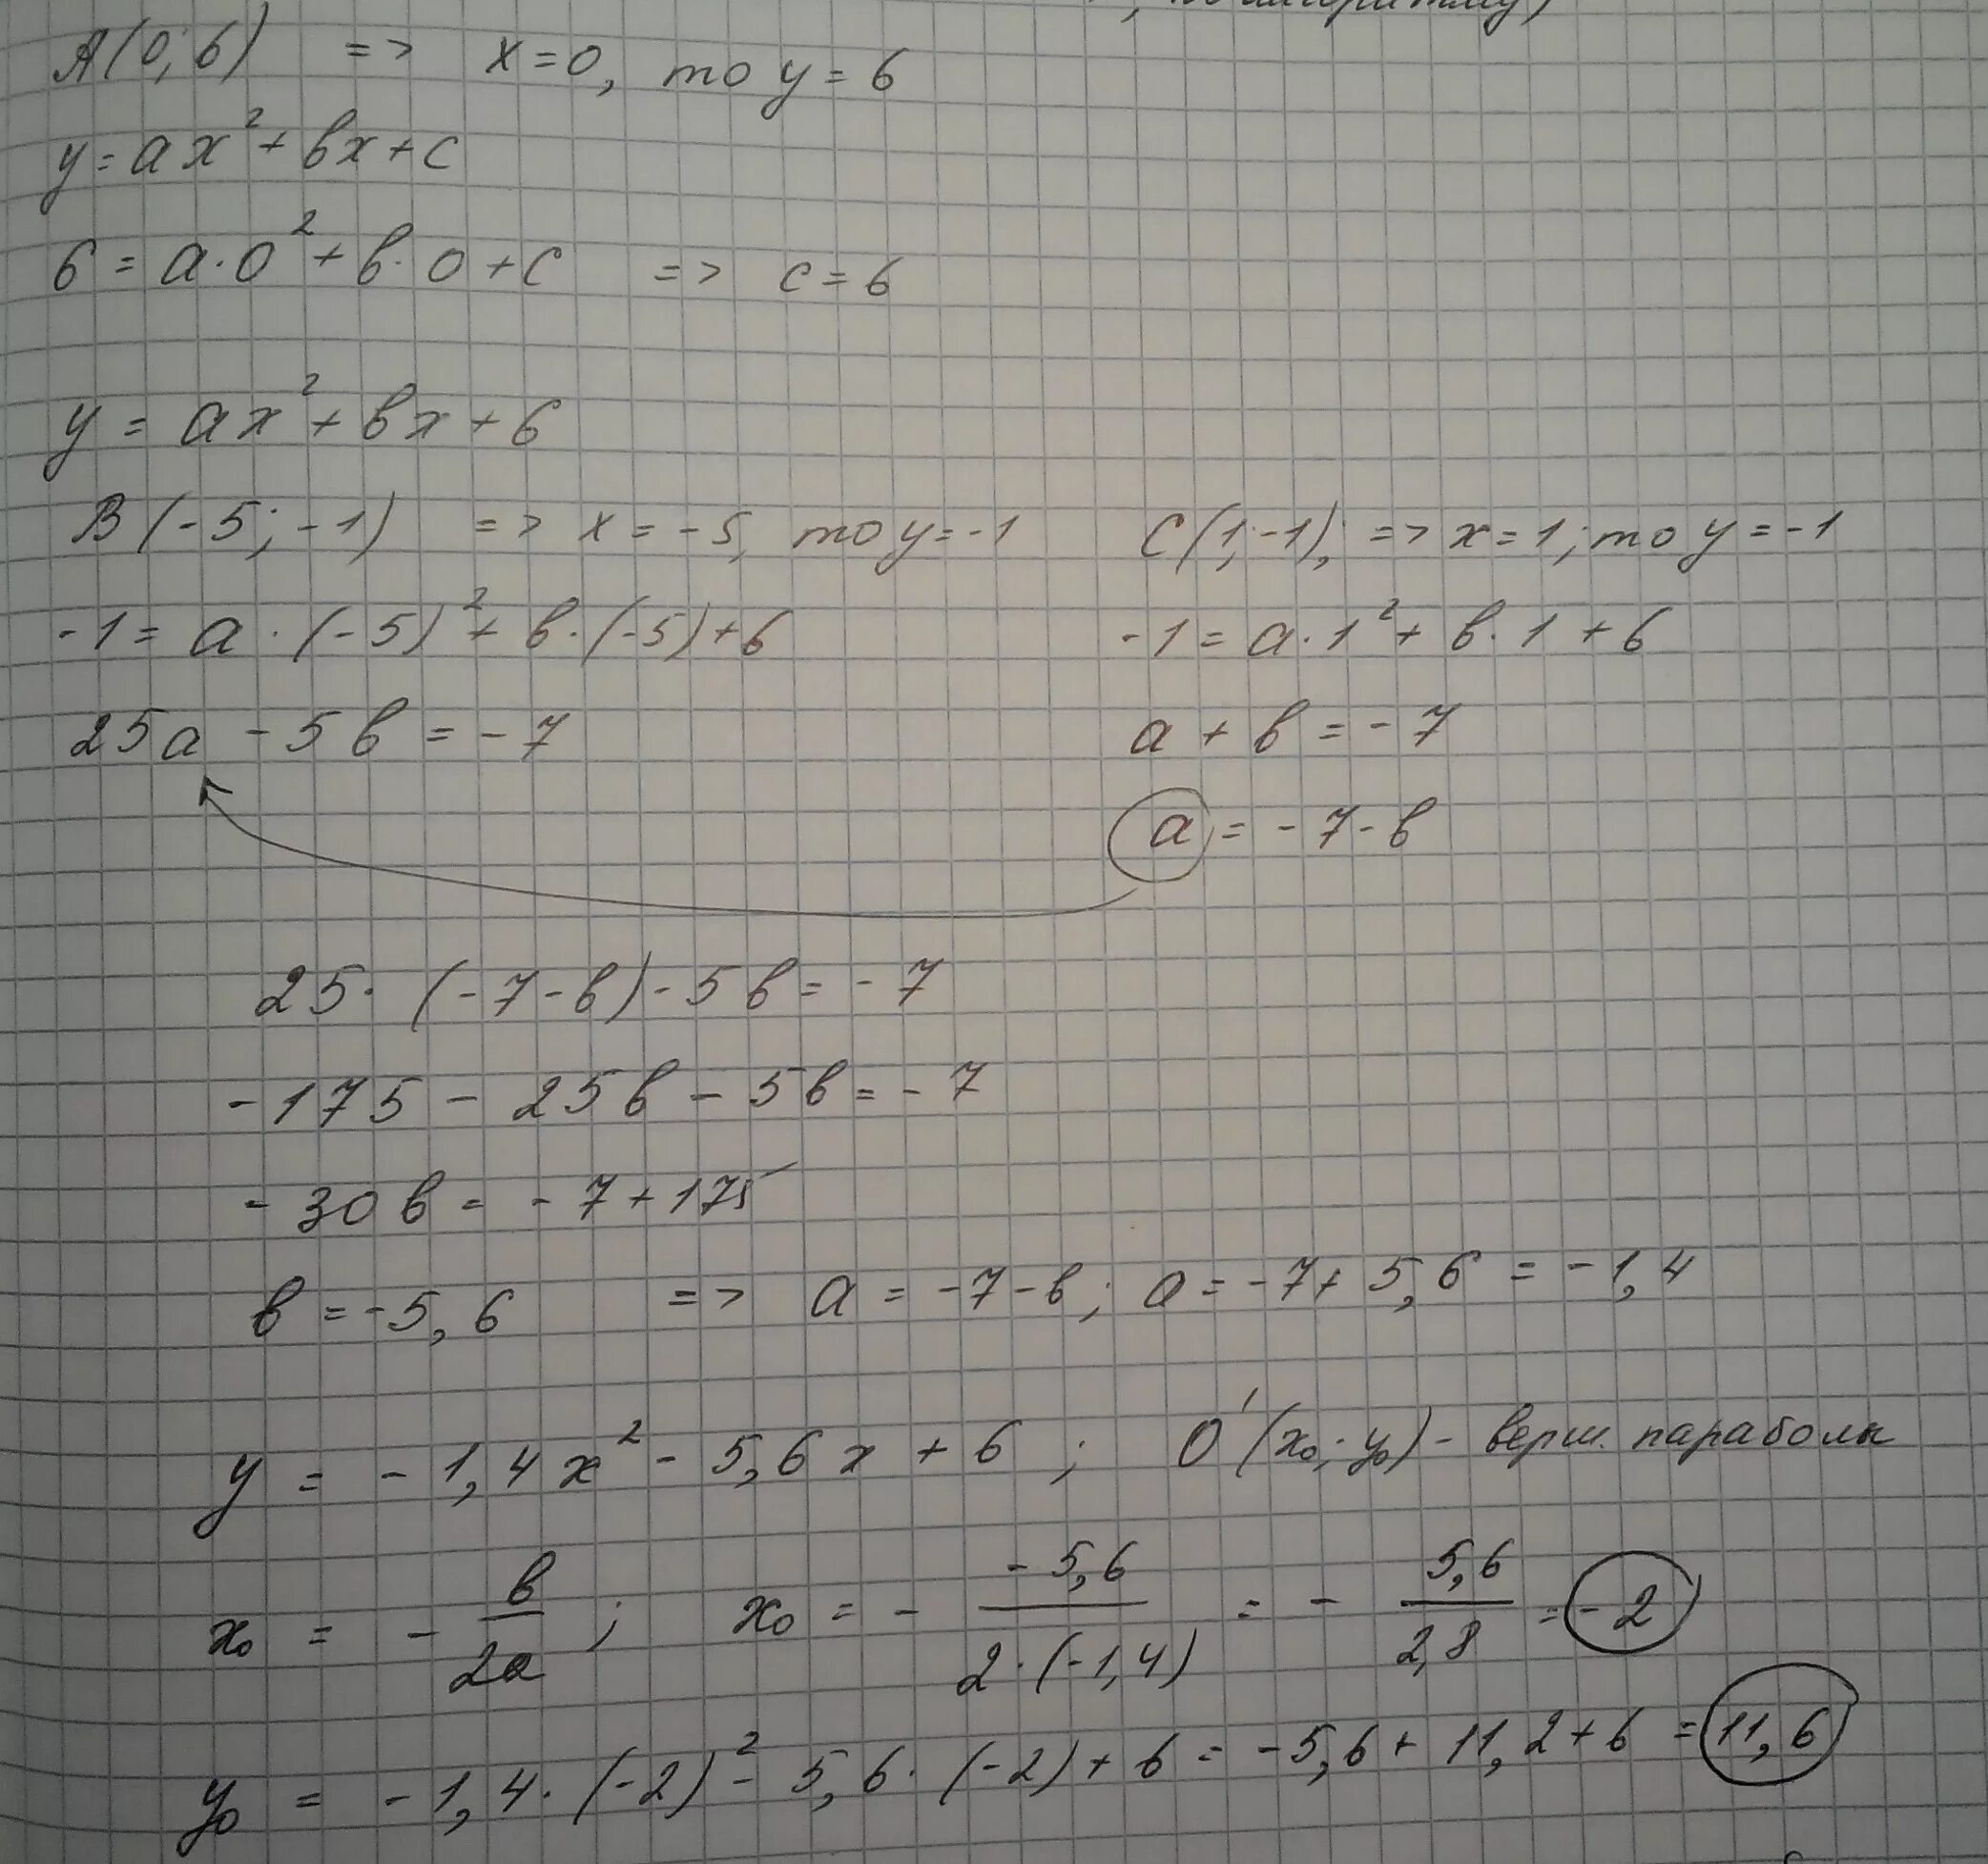 алгоритму)
A(0; 6) => x=0, то y=6
y=ax²+bx+c
6=a·0²+b·0+c => c=6
y=ax²+bx+6
B(-5; -1) => x=-5, то y=-1
-1=a·(-5)²+b·(-5)+6
25a-5b=-7
C(1; -1); => x=1; то y=-1
-1=a·1²+b·1+6
a+b=-7
a=-7-b
25·(-7-b)-5b=-7
-175-25b-5b=-7
-30b=-7+175
b=-5,6 => a=-7-b; a=-7+5,6=-1,4
y=-1,4x²-5,6x+6; O'(x₀; y₀)- верш. параболы
x₀=-b/2a; x₀=- -5,6/2·(-1,4) =- 5,6/2,8 =-2
y₀=-1,4·(-2)²-5,6·(-2)+6=-5,6+11,2+6=11,6